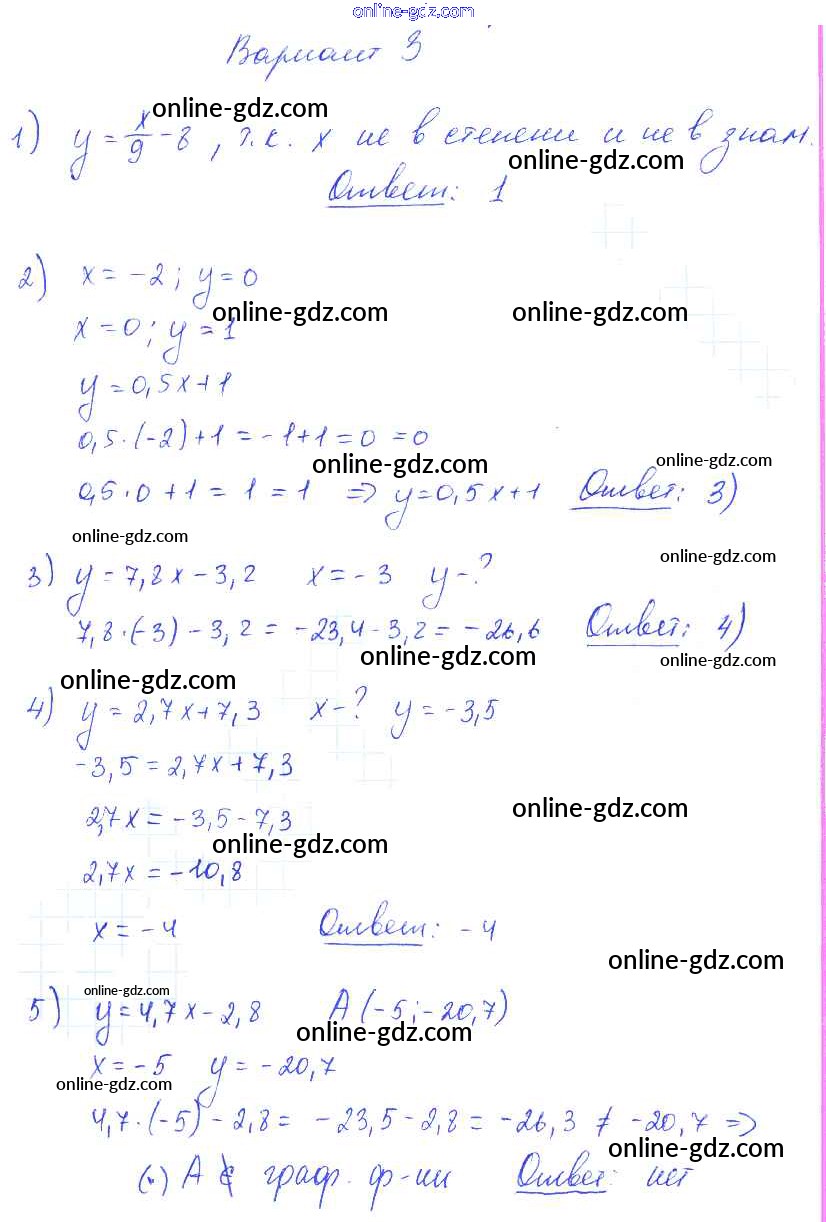 online-gdz.com
Вариант 3
online-gdz.com
1) y = x/9 - 8, т.к. x не в степени и не в знам.
online-gdz.com
Ответ: 1
2) x = -2; y = 0
online-gdz.com online-gdz.com
x = 0; y = 1
y = 0,5x+1
0,5·(-2)+1 = -1+1 = 0 = 0
online-gdz.com online-gdz.com
0,5·0+1 = 1 = 1 => y = 0,5x+1 Ответ: 3)
online-gdz.com online-gdz.com
3) y = 7,8x - 3,2 x = -3 y - ?
7,8·(-3) - 3,2 = -23,4 - 3,2 = -26,6 Ответ: 4)
online-gdz.com online-gdz.com
online-gdz.com
4) y = 2,7x+7,3 x - ? y = -3,5
-3,5 = 2,7x+7,3
online-gdz.com
2,7x = -3,5 - 7,3
online-gdz.com
2,7x = -10,8
x = -4 Ответ: -4
online-gdz.com
online-gdz.com
5) y = 4,7x - 2,8 A(-5; -20,7)
online-gdz.com
x = -5 y = -20,7
online-gdz.com
4,7·(-5) - 2,8 = -23,5 - 2,8 = -26,3 ≠ -20,7 =>
online-gdz.com
(·) A ∉ граф. ф-ии Ответ: нет